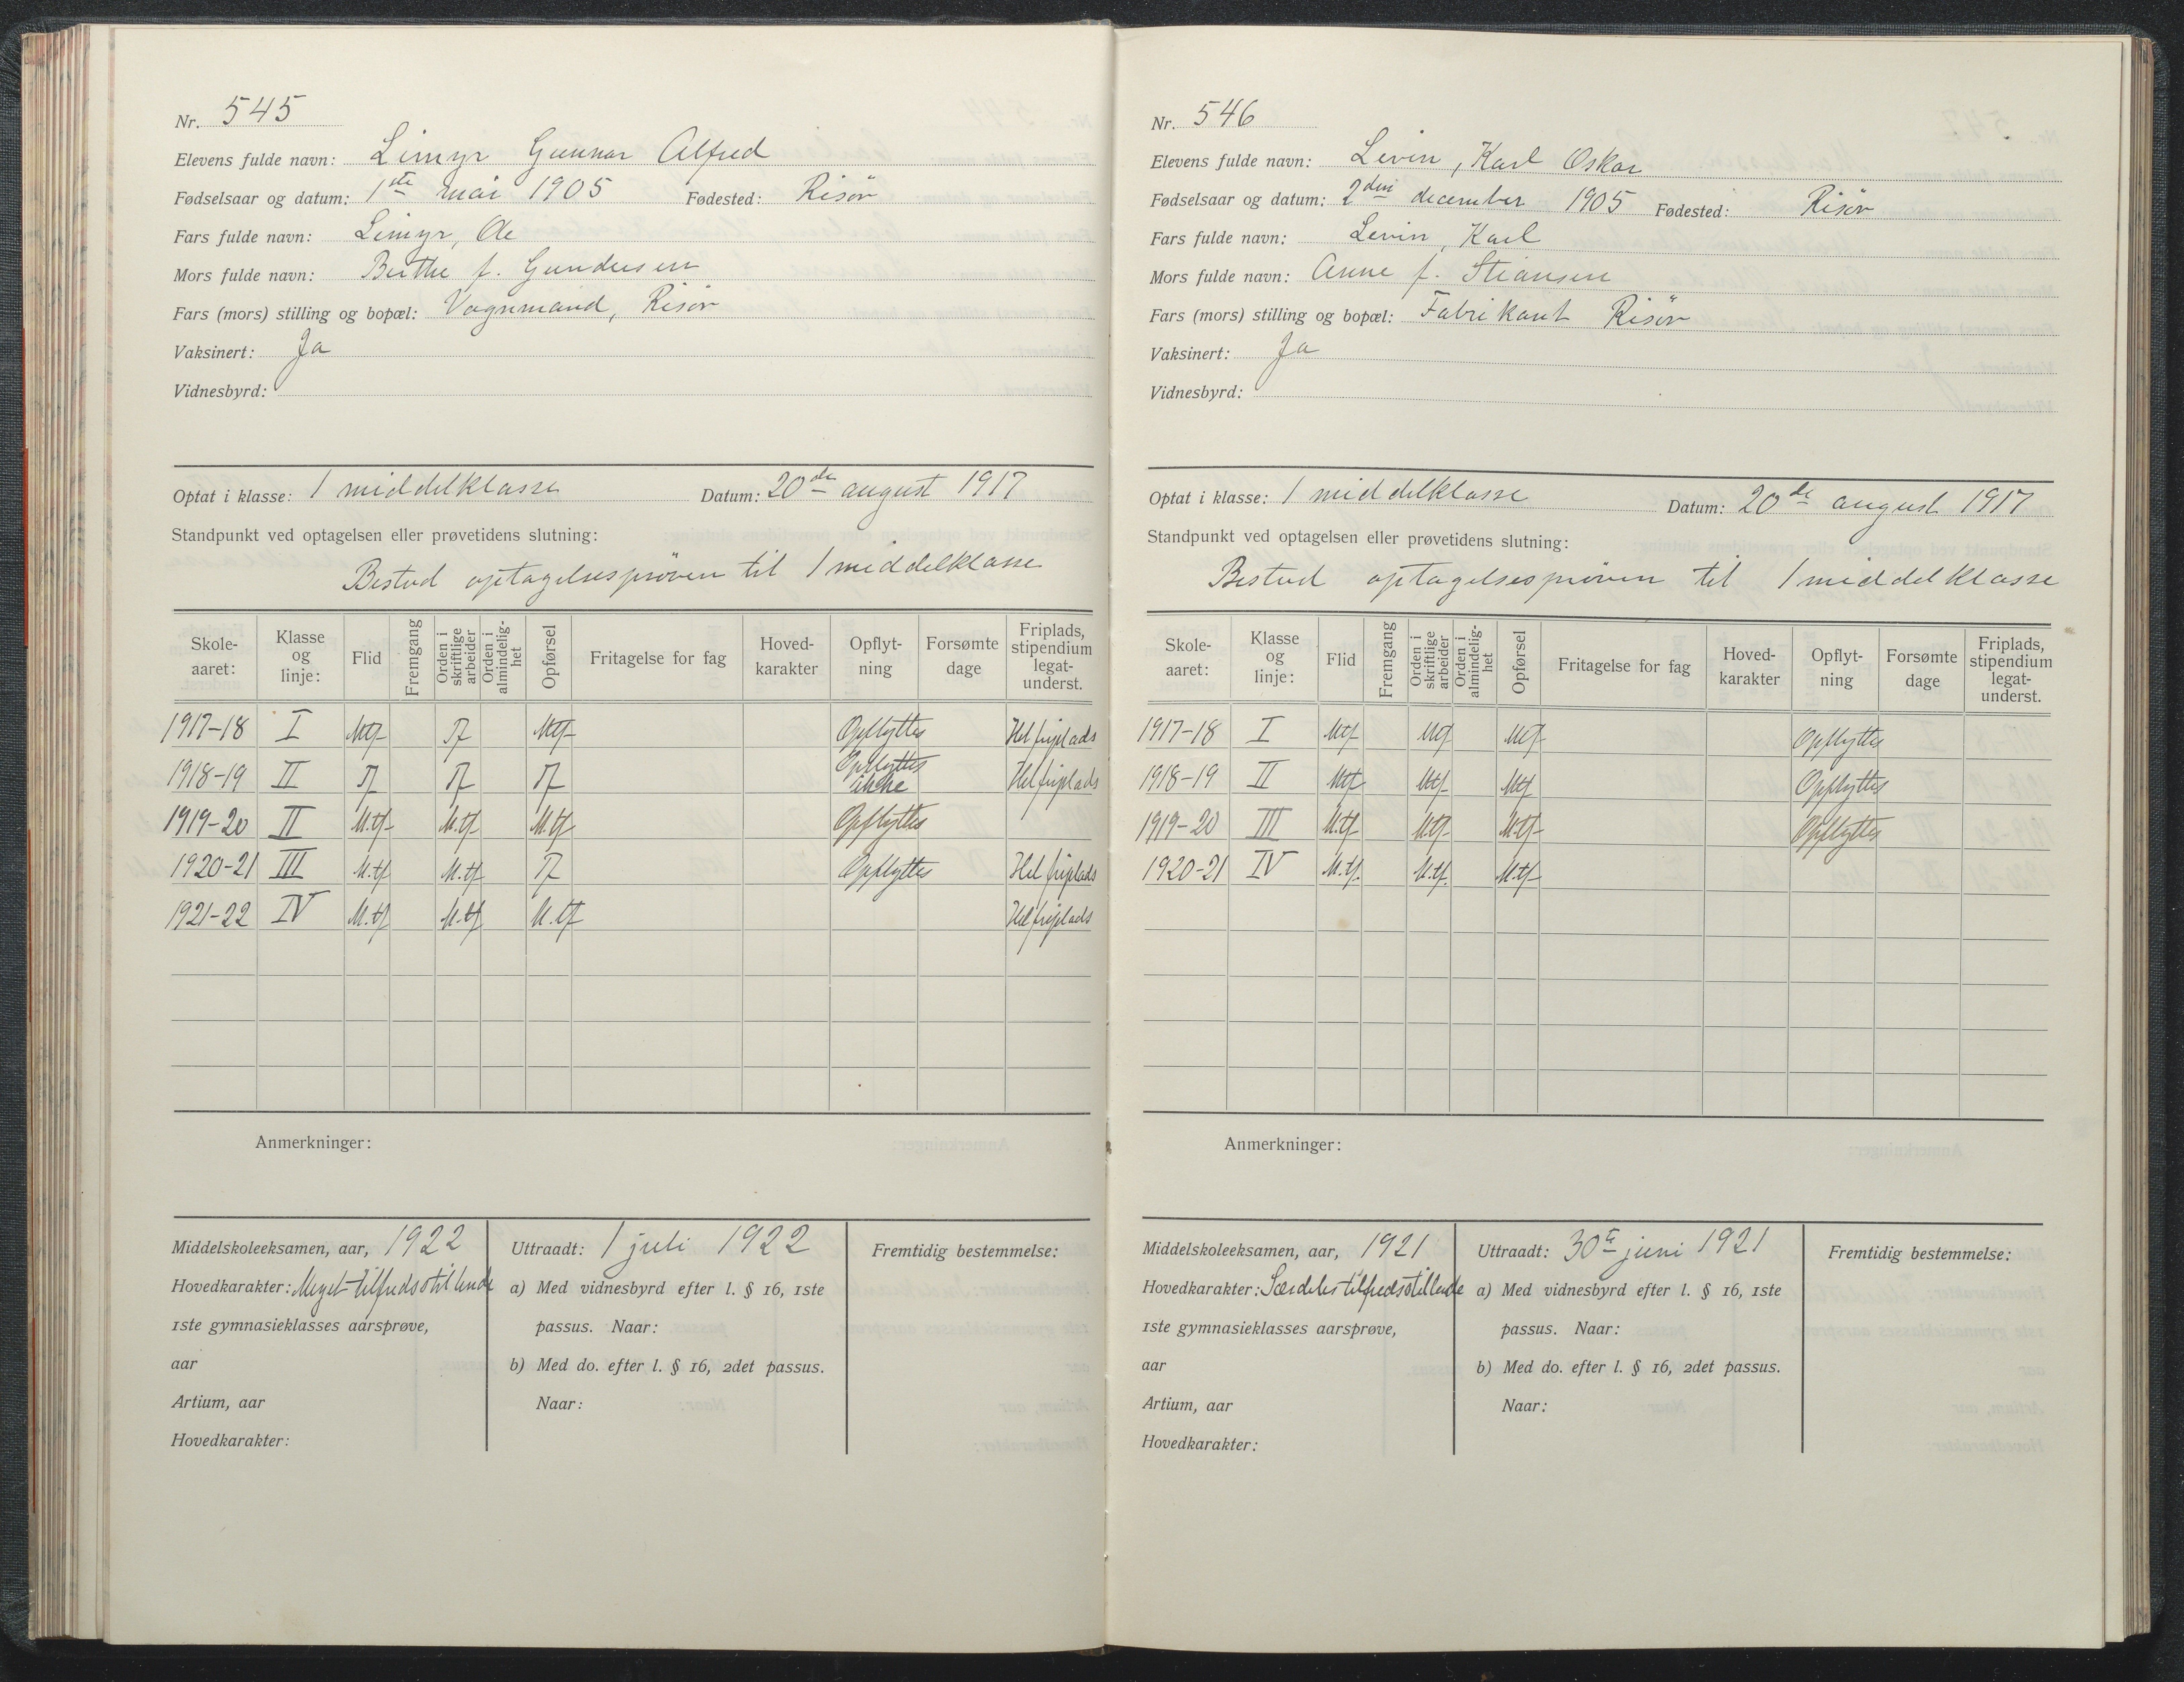 Nr. 545
Elevens fulde navn: Limyr Gunnar Alfred
Fødselsaar og datum: 1ste mai 1905 Fødested: Risör
Fars fulde navn: Limyr, Ole
Mors fulde navn: Berthe f. Gundersen
Fars (mors) stilling og bopæl: Vognmand, Risör
Vaksinert: Ja
Vidnesbyrd:
Optat i klasse: 1 middelklasse Datum: 20de august 1917
Standpunkt ved optagelsen eller prøvetidens slutning:
Bestod optagelsesprøven til 1 middelklasse
Skole-aaret: Klasse og linje: Flid Fremgang Orden i skriftlige arbeider Orden i almindelig-het Opførsel Fritagelse for fag Hoved-karakter Opflyt-ning Forsømte dage Friplads, stipendium legat-underst.
1917-18 I Mtf Tf Mtf Opflyttes Hel friplads
1918-19 II Tf Tf Tf Opflyttes ikke Hel friplads
1919-20 II M.tf M.tf M.tf Opflyttes
1920-21 III M.tf M.tf Tf Opflyttes Hel friplads
1921-22 IV M.tf M.tf M.tf Hel friplads
Anmerkninger:
Middelskoleeksamen, aar, 1922
Hovedkarakter: Meget tilfredsstillende
1ste gymnasieklasses aarsprøve,
aar
Artium, aar
Hovedkarakter:
Uttraadt: 1 juli 1922
a) Med vidnesbyrd efter l. § 16, 1ste
passus. Naar:
b) Med do. efter l. § 16, 2det passus.
Naar:
Fremtidig bestemmelse:
Nr. 546
Elevens fulde navn: Levin, Karl Oskar
Fødselsaar og datum: 2den december 1905 Fødested: Risör
Fars fulde navn: Levin, Karl
Mors fulde navn: Anne f. Stiansen
Fars (mors) stilling og bopæl: Fabrikant Risör
Vaksinert: Ja
Vidnesbyrd:
Optat i klasse: 1 middelklasse Datum: 20de august 1917
Standpunkt ved optagelsen eller prøvetidens slutning:
Bestod optagelsesprøven til 1 middelklasse
Skole-aaret: Klasse og linje: Flid Fremgang Orden i skriftlige arbeider Orden i almindelig-het Opførsel Fritagelse for fag Hoved-karakter Opflyt-ning Forsømte dage Friplads, stipendium legat-underst.
1917-18 I Mtf Mtf Mtf Opflyttes
1918-19 II Mtf Mtf Mtf Opflyttes
1919-20 III M.tf M.tf M.tf Opflyttes
1920-21 IV M.tf. M.tf. M.tf
Anmerkninger:
Middelskoleeksamen, aar, 1921
Hovedkarakter: Særdeles tilfredsstillende
1ste gymnasieklasses aarsprøve,
aar
Artium, aar
Hovedkarakter:
Uttraadt: 30te juni 1921
a) Med vidnesbyrd efter l. § 16, 1ste
passus. Naar:
b) Med do. efter l. § 16, 2det passus.
Naar:
Fremtidig bestemmelse: